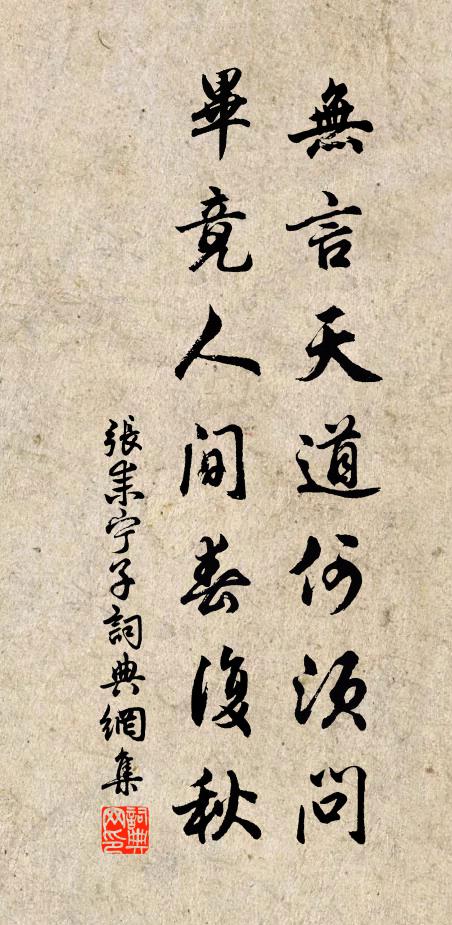 無言天道何須問
畢竟人間春復秋
張耒寧子詞典網集
詞典網印